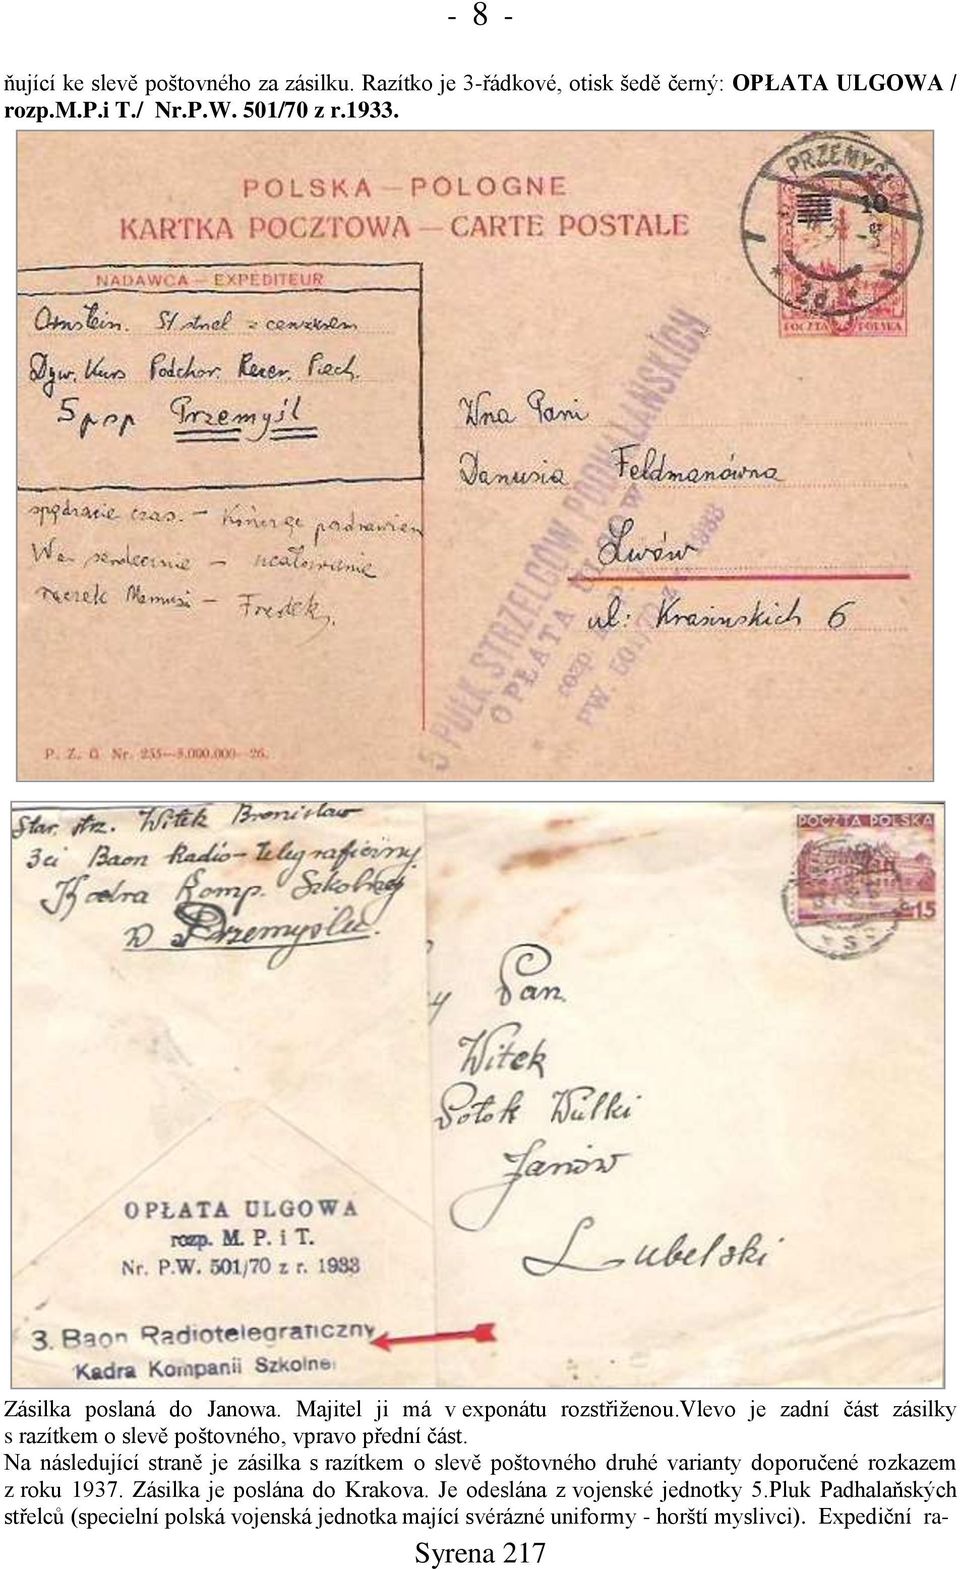 - 8 -
ňující ke slevě poštovného za zásilku. Razítko je 3-řádkové, otisk šedě černý: OPŁATA ULGOWA /
rozp.M.P.i T./ Nr.P.W. 501/70 z r.1933.
PRZEMYŚL
10
2d
POLSKA — POLOGNE
KARTKA POCZTOWA — CARTE POSTALE
POCZTA POLSKA
NADAWCA — EXPEDITEUR
Ornstein. St strzel z cenzusem
Dyw. Kurs Podchor. Rezer. Piech.
5 psp Przemyśl
Wna Pani
Danusia Feldmanówna
Lwów
ul: Krasińskich 6
spędzacie czas. — Kończąc pozdrawiam
Was serdecznie — ucałowanie
rączek Mamusi — Fredek.
5 PUŁK STRZELCÓW PODHALAŃSKICH
OPŁATA ULGOWA
rozp.
PW. 501/70 z r. 1933
P. Z. G Nr. 255—3.000.000—26.
Star. strz. Witek Bronisław
3ci Baon Radio-Telegraficzny
Kadra Komp. Szkolnej
w Przemyślu.
POCZTA POLSKA
15
Pan
Witek
Potok Wulki
Janów
Lubelski
OPŁATA ULGOWA
rozp. M. P. i T.
Nr. P.W. 501/70 z r. 1933
3. Baon Radiotelegraficzny
Kadra Kompanii Szkolnej
Zásilka poslaná do Janowa. Majitel ji má v exponátu rozstřiženou.Vlevo je zadní část zásilky
s razítkem o slevě poštovného, vpravo přední část.
Na následující straně je zásilka s razítkem o slevě poštovného druhé varianty doporučené rozkazem
z roku 1937. Zásilka je poslána do Krakova. Je odeslána z vojenské jednotky 5.Pluk Padhalaňských
střelců (specielní polská vojenská jednotka mající svérázné uniformy - horští myslivci). Expediční ra-
Syrena 217